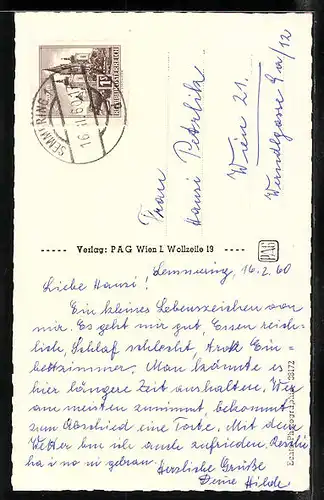 SEMMERING 1
16.II.60
REPUBLIK ÖSTERREICH
Frau
Hansi Petrlik
Wien 21.
9a/12
Verlag: PAG Wien I. Wollzeile 19
PAG
Echte Photographie 28172
Semmering, 16.2.60
Liebe Hansi!
Ein kleines Lebenszeichen von
mir. Es geht mir gut, Essen reich-
lich, Schlaf schlecht, trotz Ein-
bettzimmer. Man könnte es
hier längere Zeit aushalten. Wer
am meisten zunimmt, bekommt
zum Abschied eine Torte. Mit dem
Wetter bin ich auch zufrieden.
Herzliche Grüße
Deine Hilde